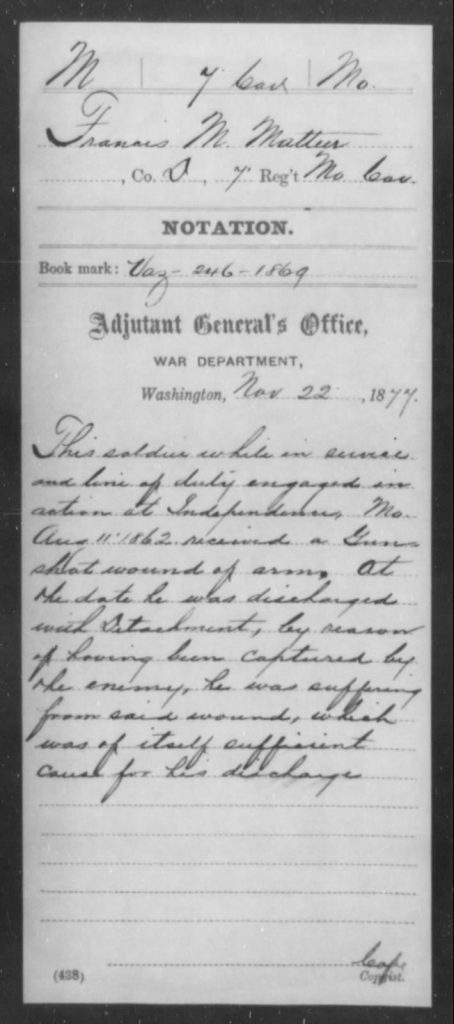 M | 7 Cav | Mo.
Francis M. Matteer
, Co. D, 7 Reg't Mo Cav.
NOTATION.
Book mark: Vaz-246-1869
Adjutant General's Office,
WAR DEPARTMENT,
Washington, Nov 22, 1877.
This soldier while in service
and line of duty engaged in
action at Independence, Mo.
Aug 11" 1862 received a Gun-
shot wound of arm. At
the date he was discharged
with Detachment, by reason
of having been captured by
the enemy, he was suffering
from said wound, which
was of itself sufficient
cause for his discharge
(438)
Copyist.